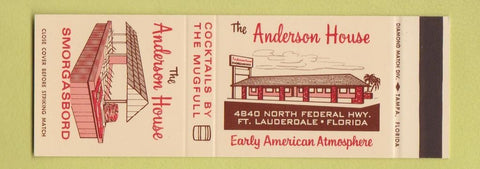 CLOSE COVER BEFORE STRIKING MATCH
SMORGASBORD
The
Anderson House
COCKTAILS BY
THE MUGFULL
The Anderson House
4840 NORTH FEDERAL HWY.
FT. LAUDERDALE • FLORIDA
Early American Atmosphere
DIAMOND MATCH DIV. ◆ TAMPA, FLORIDA